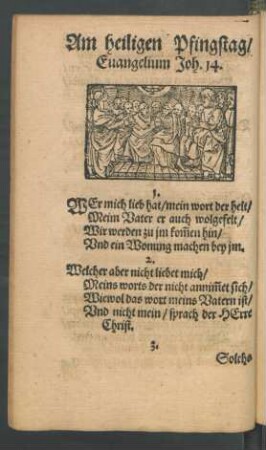 Am heiligen Pfingstag/
Euangelium Joh. 14.
1.
WEr mich lieb hat/mein wort der helt/
Meim Vater er auch wolgefelt/
Wir werden zu jm kom̃en hin/
Vnd ein Wonung machen bey jm.
2.
Welcher aber nicht liebet mich/
Meins worts der nicht annim̃et sich/
Wiewol das wort meins Vatern ist/
Vnd nicht mein/sprach der HErre
Christ.
3.
Solchs